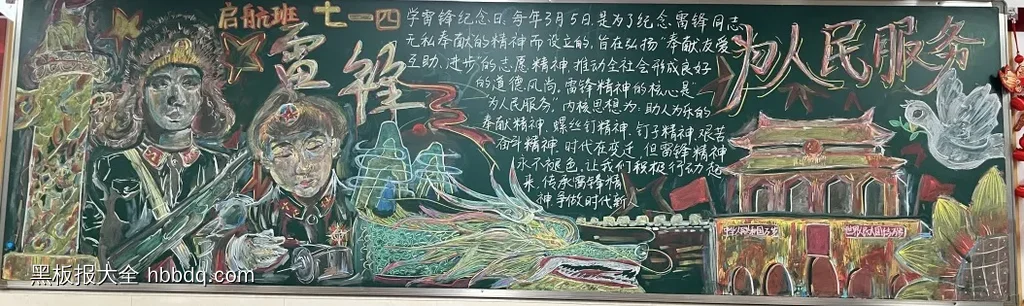 启航班 七一四
雷锋
学雷锋纪念日,每年3月5日,是为了纪念雷锋同志
无私奉献的精神而设立的,旨在弘扬"奉献友爱
互助、进步"的志愿精神,推动全社会形成良好
的道德风尚,雷锋精神的核心是
"为人民服务"内核思想为:助人为乐的
奉献精神,螺丝钉精神,钉子精神,艰苦
奋斗精神,时代在变迁,但雷锋精神
永不褪色,让我们积极行动起
来,传承雷锋精
神,争做时代新人
为人民服务
黑板报大全 hbbdq.com